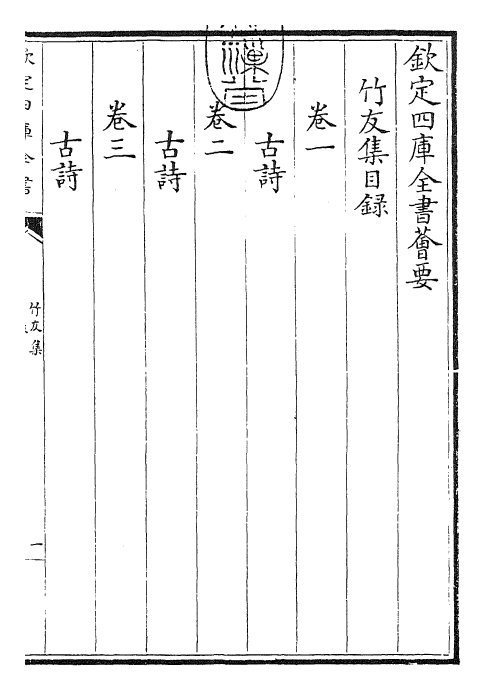 欽定四庫全書薈要
竹友集目録
卷一
古詩
卷二
古詩
卷三
古詩
欽定四庫全書
竹友集
一